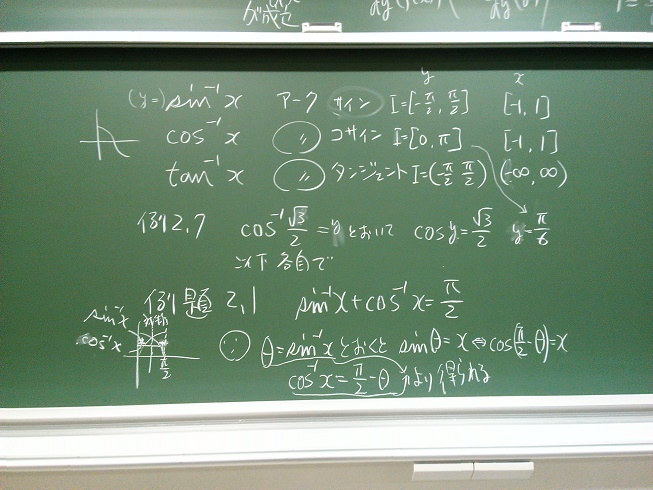 が成立
y x
(y=) sin⁻¹x アーク サイン I=[-π/2, π/2] [-1, 1]
cos⁻¹x 〃 コサイン I=[0, π] [-1, 1]
tan⁻¹x 〃 タンジェント I=(-π/2 π/2) (-∞, ∞)
例2.7 cos⁻¹ √3/2 = y とおいて cos y = √3/2 y = π/6
以下各自で
例題2.1 sin⁻¹x + cos⁻¹x = π/2
sin⁻¹x 対称
cos⁻¹x π/2
∵ θ = sin⁻¹x とおくと sinθ = x ⇔ cos(π/2 - θ) = x
cos⁻¹x = π/2 - θ より得られる